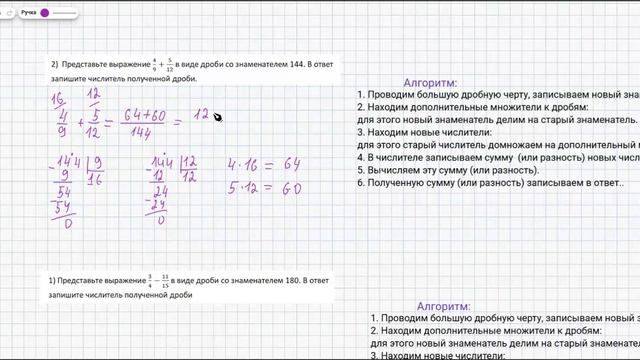 Ручка
2) Представьте выражение 4/9 + 5/12 в виде дроби со знаменателем 144. В ответ
запишите числитель полученной дроби.
16 12
4/9 + 5/12 = 64+60/144 = 12
144 | 9
9 | 16
54
54
0
144 | 12
12 | 12
24
24
0
4 · 16 = 64
5 · 12 = 60
1) Представьте выражение 3/4 − 11/15 в виде дроби со знаменателем 180. В ответ
запишите числитель полученной дроби
Алгоритм:
1. Проводим большую дробную черту, записываем новый зна
2. Находим дополнительные множители к дробям:
для этого новый знаменатель делим на старый знаменатель.
3. Находим новые числители:
для этого старый числитель домножаем на дополнительный м
4. В числителе записываем сумму (или разность) новых числи
5. Вычисляем эту сумму (или разность).
6. Полученную сумму (или разность) записываем в ответ..
Алгоритм:
1. Проводим большую дробную черту, записываем новый з
2. Находим дополнительные множители к дробям:
для этого новый знаменатель делим на старый знаменате
3. Находим новые числители: